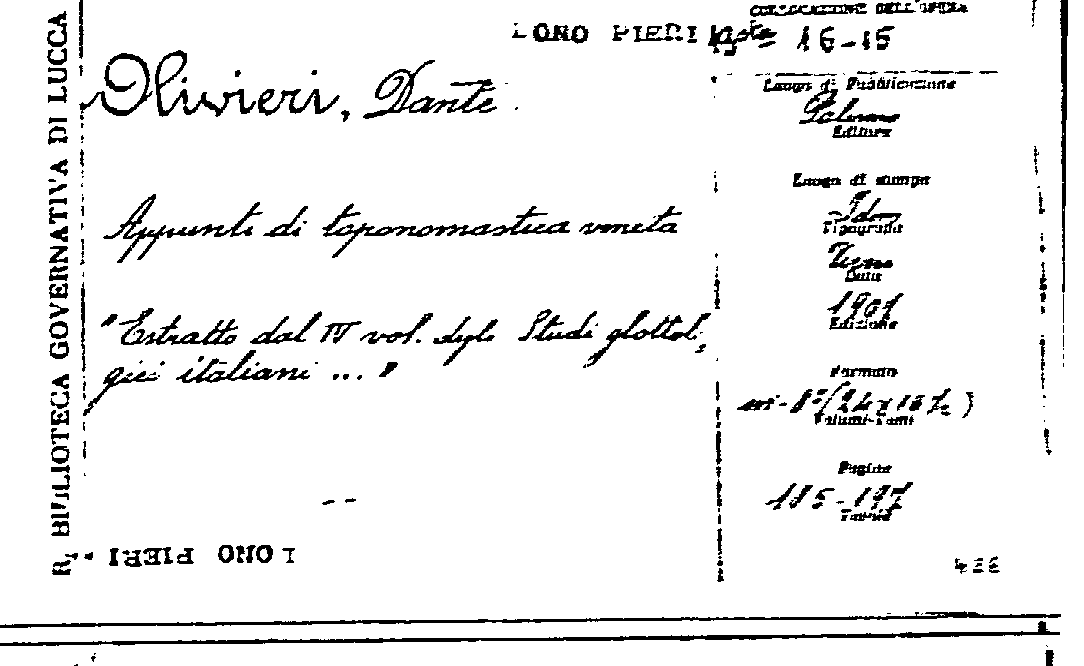 R. BIBLIOTECA GOVERNATIVA DI LUCCA
COLLOCAZIONE DELL'OPERA
LONO PIERI 16-15
Olivieri, Dante.
Appunti di toponomastica veneta
"Estratto dal IV vol. degli Studi glottol,
gici italiani ... "
--
Luogo di Pubblicazione
Palermo
Editore
Luogo di stampa
Idem
Tipografia
Data
1901
Edizione
Formato
Volumi-Tomi
Pagine
185-197
Tavole
LONO PIERI